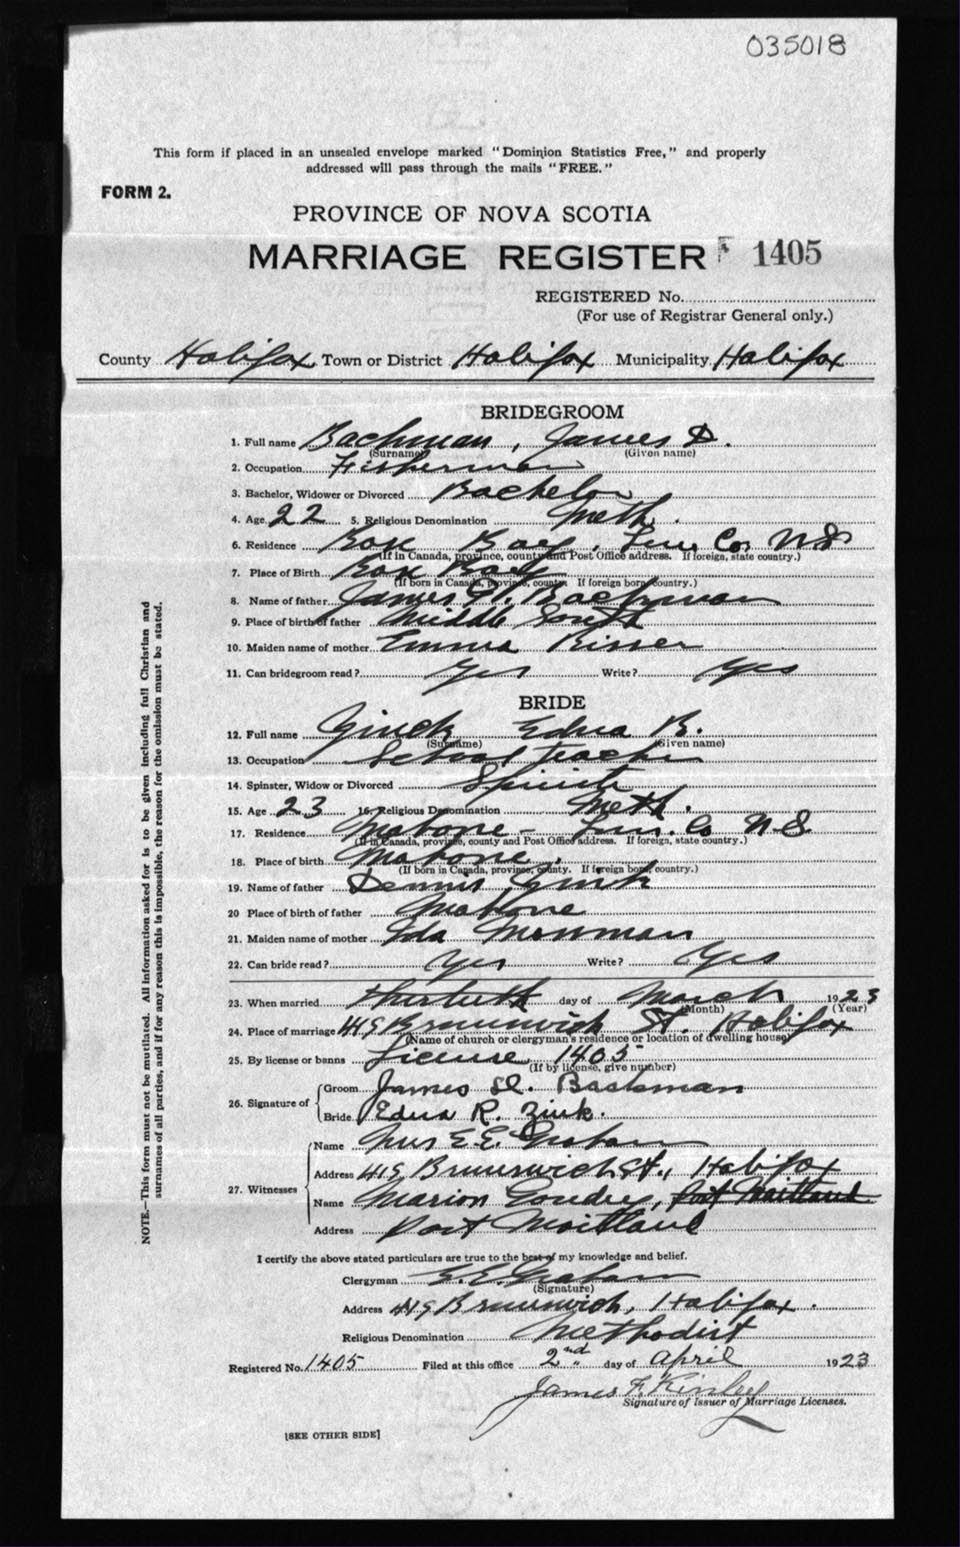 035018
This form if placed in an unsealed envelope marked "Dominion Statistics Free," and properly
addressed will pass through the mails "FREE."
FORM 2.
PROVINCE OF NOVA SCOTIA
MARRIAGE REGISTER 1405
REGISTERED No.
(For use of Registrar General only.)
County Halifax Town or District Halifax Municipality Halifax
BRIDEGROOM
1. Full name Bachman, James D.
(Surname) (Given name)
2. Occupation Fisherman
3. Bachelor, Widower or Divorced Bachelor
4. Age 22 5. Religious Denomination Meth.
6. Residence Rose Bay, Lun. Co. N.S.
(If in Canada, province, county and Post Office address. If foreign, state country.)
7. Place of Birth Rose Bay
(If born in Canada, province, county. If foreign born, country.)
8. Name of father James Bachman
9. Place of birth of father Middle South
10. Maiden name of mother Emma Risser
11. Can bridegroom read? Yes Write? Yes
BRIDE
12. Full name Zinck Edna R.
(Surname) (Given name)
13. Occupation School teacher
14. Spinster, Widow or Divorced Spinster
15. Age 23 16. Religious Denomination Meth.
17. Residence Mahone - Lun. Co. N.S.
(If in Canada, province, county and Post Office address. If foreign, state country.)
18. Place of birth Mahone.
(If born in Canada, province, county. If foreign born, country.)
19. Name of father Dennis Zinck
20 Place of birth of father Mahone
21. Maiden name of mother Ida
22. Can bride read? Yes Write? Yes
23. When married thirtieth day of March 1923
(Month) (Year)
24. Place of marriage 419 Brunswick St. Halifax
(Name of church or clergyman's residence or location of dwelling house)
25. By license or banns License 1405
(If by license, give number)
26. Signature of
Groom James D. Backman
Bride Edna R. Zink.
27. Witnesses
Name Mrs E. E. Graham
Address 419 Brunswick St., Halifax
Name Marion Goudey, Port Maitland
Address Port Maitland
I certify the above stated particulars are true to the best of my knowledge and belief.
Clergyman E. E. Graham
(Signature)
Address 419 Brunswick, Halifax.
Religious Denomination Methodist
Registered No. 1405 Filed at this office 2nd day of April 1923
James F. Kinley
Signature of Issuer of Marriage Licenses.
[SEE OTHER SIDE]
NOTE.—This form must not be mutilated. All information asked for is to be given including full Christian and
surnames of all parties, and if for any reason this is impossible, the reason for the omission must be stated.